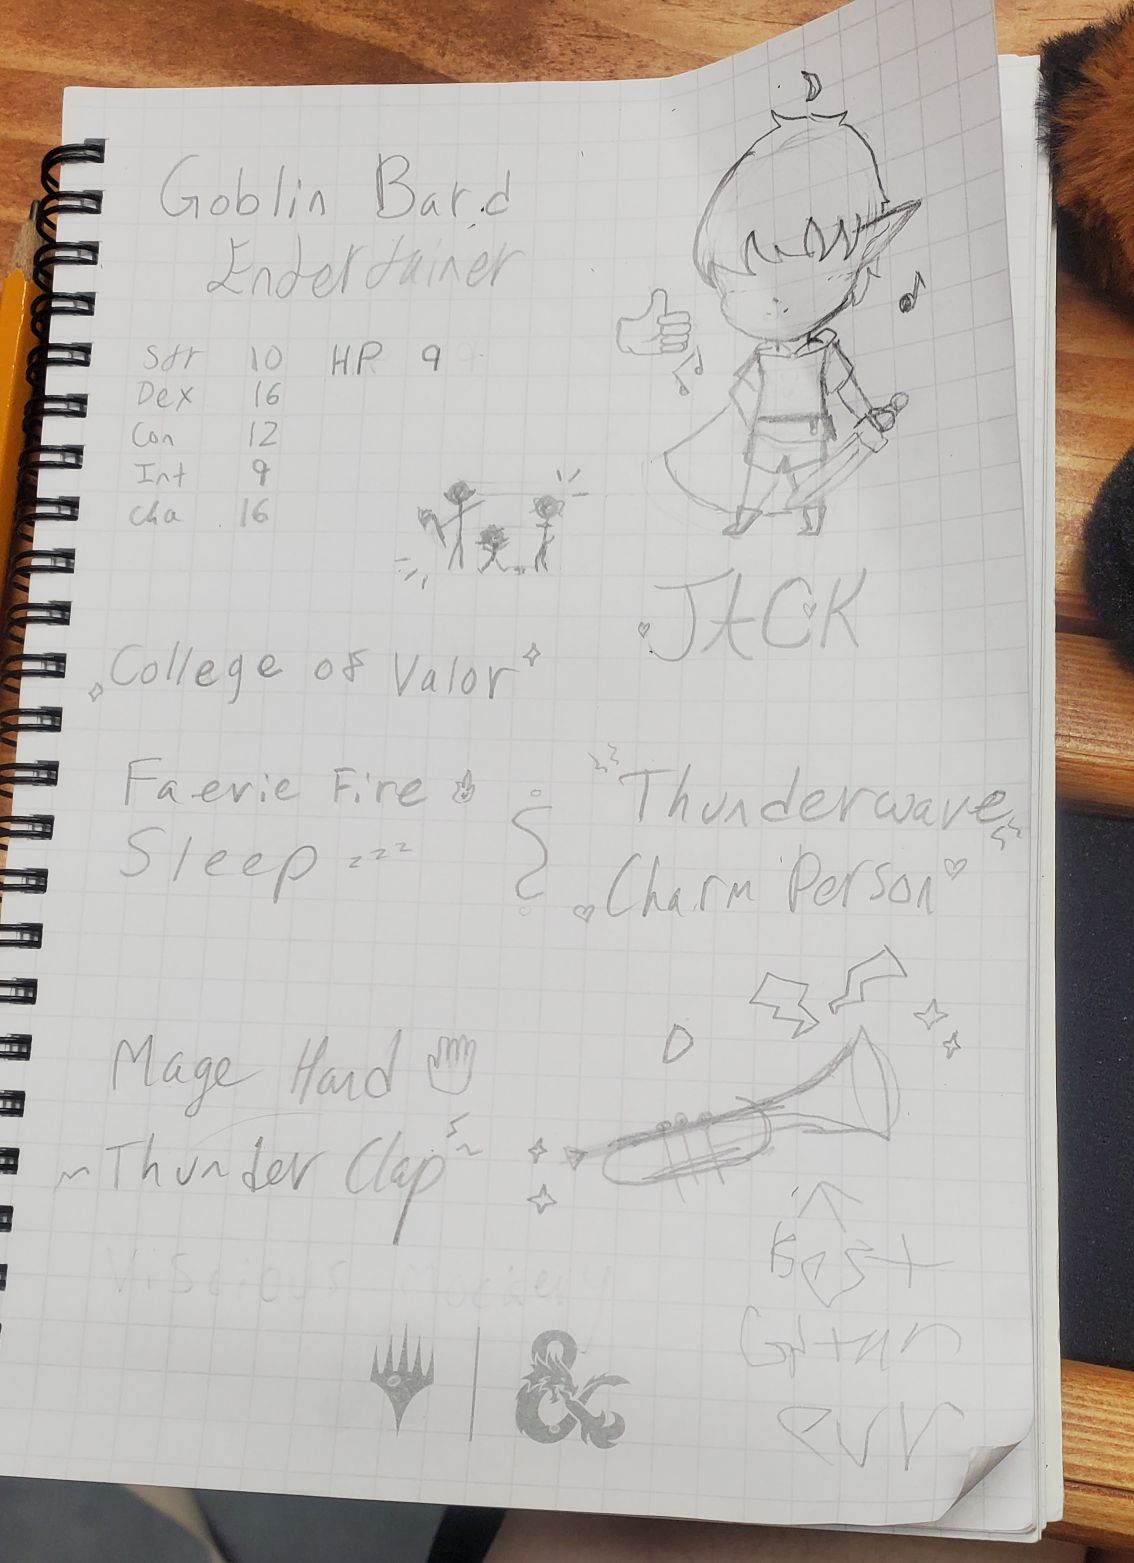 Goblin Bard
Entertainer
Str 10 HP 9
Dex 16
Con 12
Int 9
Cha 16
JACK
College of Valor
Faerie Fire
Sleep zzz
Thunderwave
Charm Person
Mage Hand
Thunder Clap
Viscious Mockery
Best
Gitar
evr